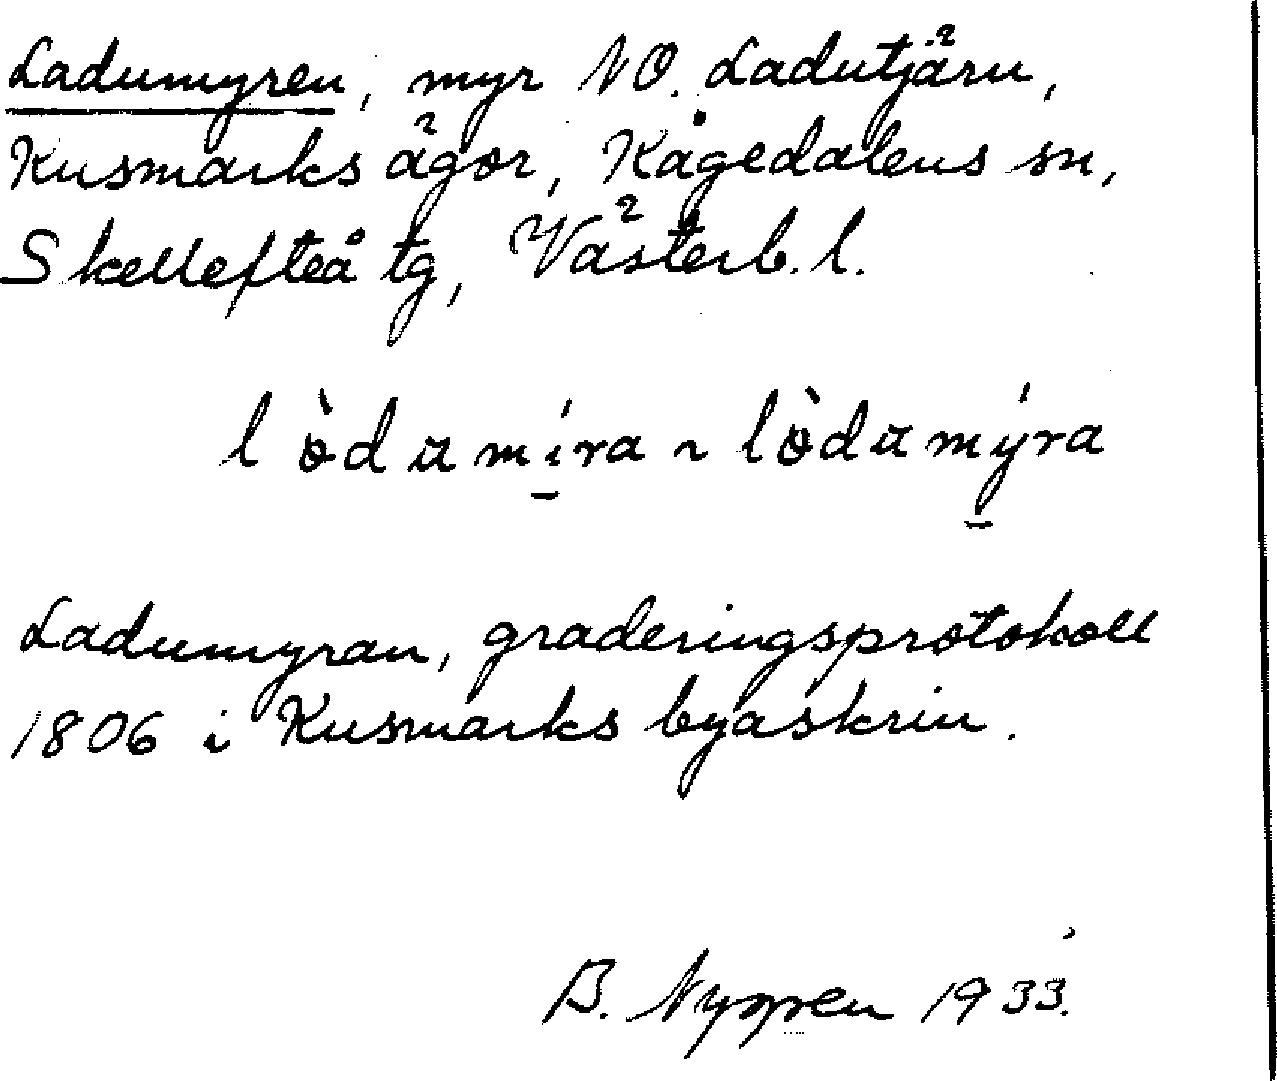 Ladumyren, myr NO. Ladutjärn,
Kusmarks ägor, Kågedalens sn,
Skellefteå tg, Västerb. l.
lòdumíra ~ lòdumýra
Ladumyran, graderingsprotokoll
1806 i Kusmarks byaskrin.
B. Nygren 1933.